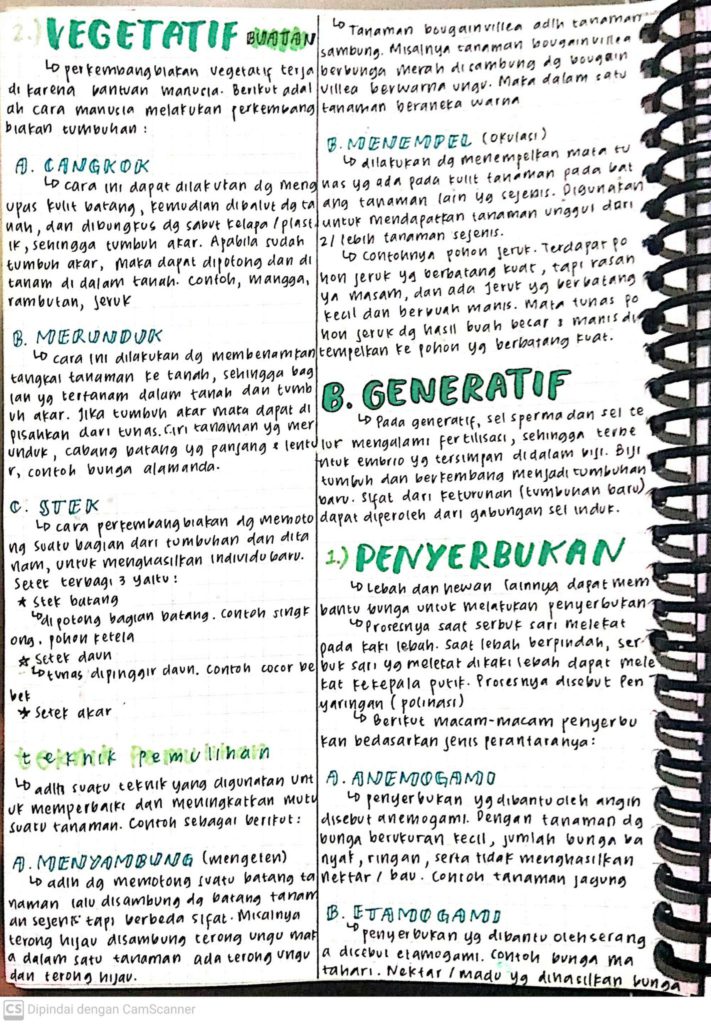 2.) VEGETATIF BUATAN
↳ perkembangbiakan vegetatif terja
di karena bantuan manusia. Berikut adal
ah cara manusia melakukan perkembang
biakan tumbuhan :
A. CANGKOK
↳ cara ini dapat dilakukan dg meng
upas kulit batang, kemudian dibalut dg ta
nah, dan dibungkus dg sabut kelapa / plast
ik, sehingga tumbuh akar. Apabila sudah
tumbuh akar, maka dapat dipotong dan di
tanam di dalam tanah. Contoh, mangga,
rambutan, jeruk
B. MERUNDUK
↳ cara ini dilakukan dg membenamkan
tangkai tanaman ke tanah, sehingga bag
ian yg tertanam dalam tanah dan tumb
uh akar. Jika tumbuh akar maka dapat di
pisahkan dari tunas. Ciri tanaman yg mer
unduk, cabang batang yg panjang & lentu
r, contoh bunga alamanda.
C. STEK
↳ cara perkembangbiakan dg memoto
ng suatu bagian dari tumbuhan dan dita
nam, untuk menghasilkan individu baru.
Setek terbagi 3 yaitu :
★ Stek batang
↳ dipotong bagian batang. Contoh singk
ong, pohon ketela
★ Setek daun
↳ tunas dipinggir daun. Contoh cocor be
bek
★ Setek akar
teknik pemulihan
↳ adlh suatu teknik yang digunakan unt
uk memperbaiki dan meningkatkan mutu
suatu tanaman. Contoh sebagai berikut :
A. MENYAMBUNG (mengeten)
↳ adlh dg memotong suatu batang ta
naman lalu disambung dg batang tanam
an sejenis tapi berbeda sifat. Misalnya
terong hijau disambung terong ungu mak
a dalam satu tanaman ada terong ungu
dan terong hijau.
↳ Tanaman bougainvillea adlh tanaman
sambung. Misalnya tanaman bougainvillea
berbunga merah disambung dg bougain
villea berwarna ungu. Maka dalam satu
tanaman beraneka warna
B. MENEMPEL (okulasi)
↳ dilakukan dg menempelkan mata tu
nas yg ada pada kulit tanaman pada bat
ang tanaman lain yg sejenis. Digunakan
untuk mendapatkan tanaman unggul dari
2/ lebih tanaman sejenis.
↳ Contohnya pohon jeruk. Terdapat po
hon jeruk yg berbatang kuat, tapi rasan
ya masam, dan ada jeruk yg berbatang
kecil dan berbuah manis. Mata tunas po
hon jeruk dg hasil buah besar & manis di
tempelkan ke pohon yg berbatang kuat.
B. GENERATIF
↳ Pada generatif, sel sperma dan sel te
lur mengalami fertilisasi, sehingga terbe
ntuk embrio yg tersimpan didalam biji. Biji
tumbuh dan berkembang menjadi tumbuhan
baru. Sifat dari keturunan (tumbuhan baru)
dapat diperoleh dari gabungan sel induk.
1.) PENYERBUKAN
↳ Lebah dan hewan lainnya dapat mem
bantu bunga untuk melakukan penyerbukan
↳ Prosesnya saat serbuk sari melekat
pada kaki lebah. Saat lebah berpindah, ser
buk sari yg melekat dikaki lebah dapat mele
kat kekepala putik. Prosesnya disebut Pen
yaringan (polinasi)
↳ Berikut macam-macam penyerbu
kan bedasarkan jenis perantaranya :
A. ANEMOGAMI
↳ penyerbukan yg dibantu oleh angin
disebut anemogami. Dengan tanaman dg
bunga berukuran kecil, jumlah bunga ba
nyak, ringan, serta tidak menghasilkan
nektar / bau. Contoh tanaman jagung
B. ETAMOGAMI
↳ penyerbukan yg dibantu oleh serang
a disebut etamogami. Contoh bunga ma
tahari. Nektar / madu yg dihasilkan bunga
CS Dipindai dengan CamScanner